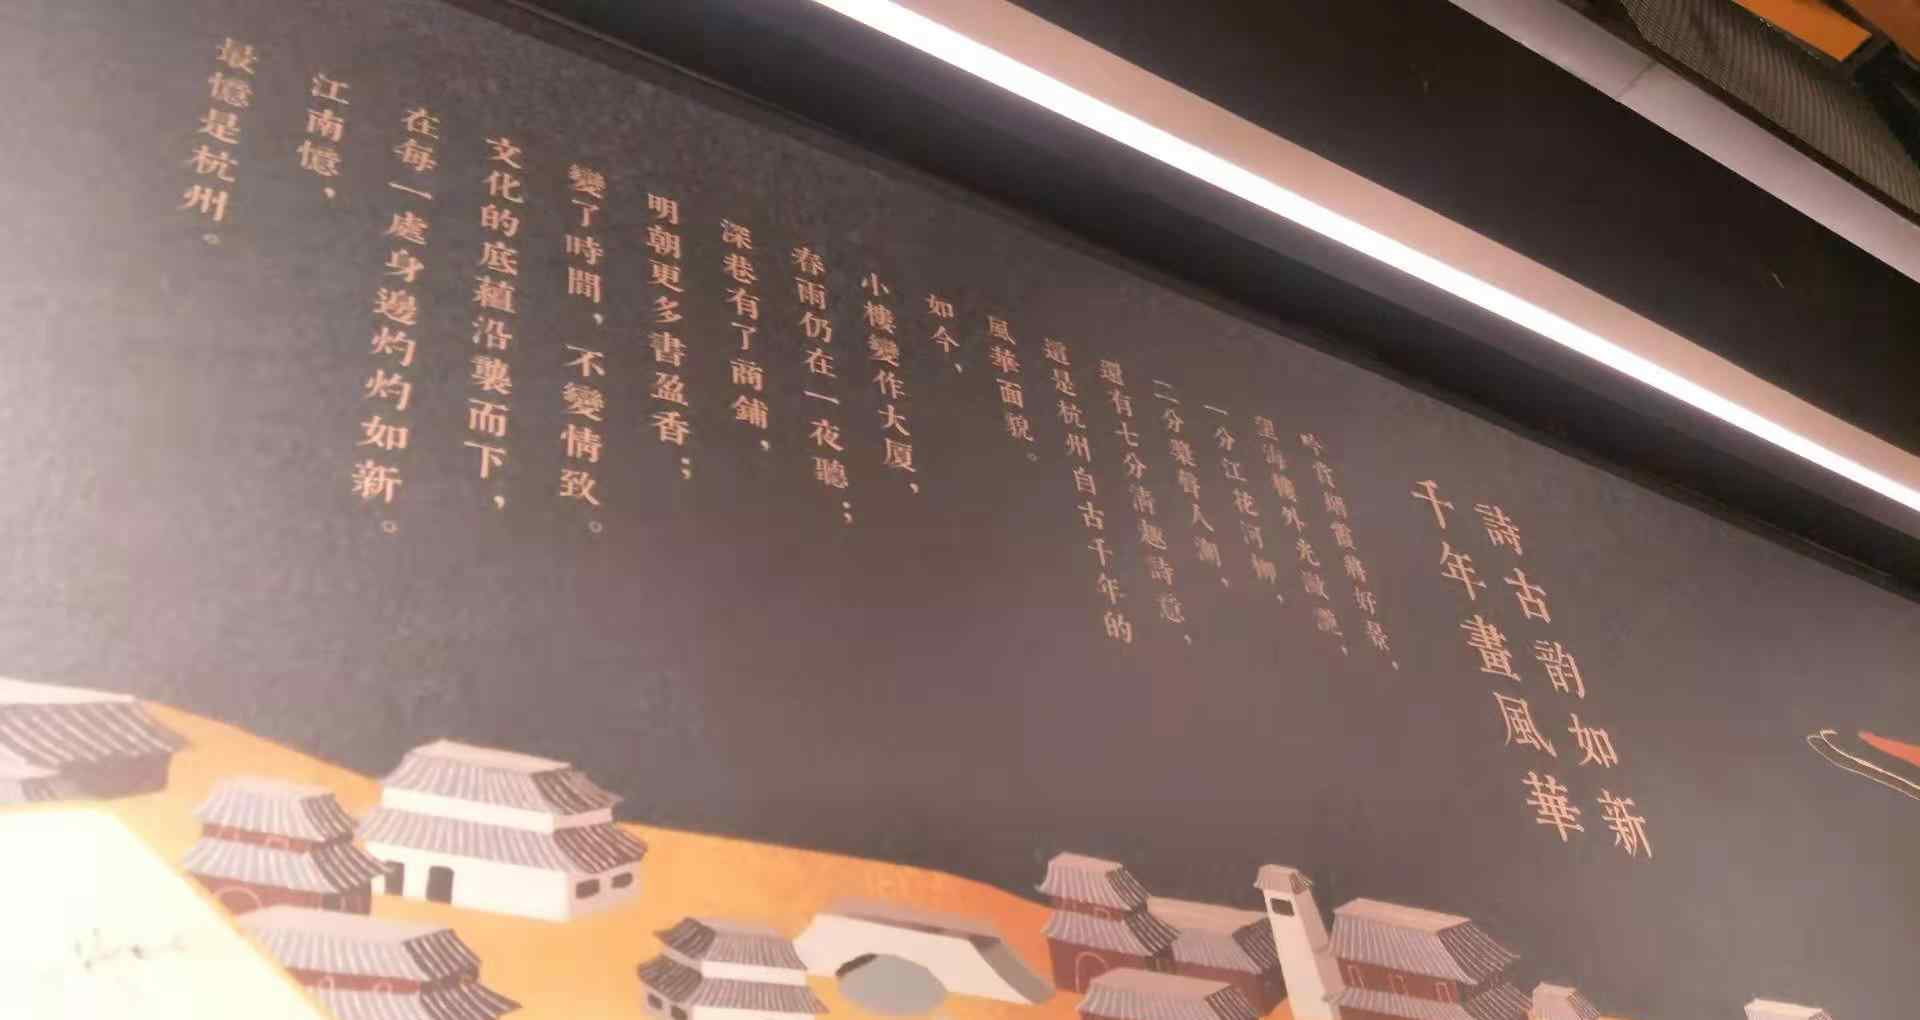 詩古韵如新
千年畫風華
吟賞烟霞好景，
望海樓外光瀲灩，
一分江花河柳，
二分槳聲人潮，
還有七分清趣詩意，
這是杭州自古千年的
風華面貌。
如今，
小樓變作大厦，
春雨仍在一夜聽；
深巷有了商鋪，
明朝更多書盈香；
變了時間，不變情致。
文化的底藴沿襲而下，
在每一處身邊灼灼如新。
江南憶，
最憶是杭州。